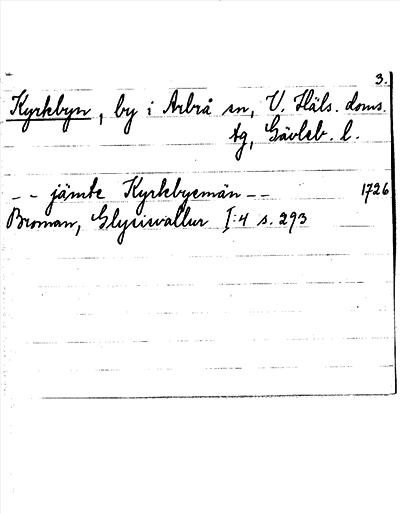 3.
Kyrkbyn, by i Arbrå sn, V. Häls. doms.
tg, Gävleb. l.
-- jämte Kyrkbyemän -- 1726
Broman, Glysisvallur I:4 s. 293